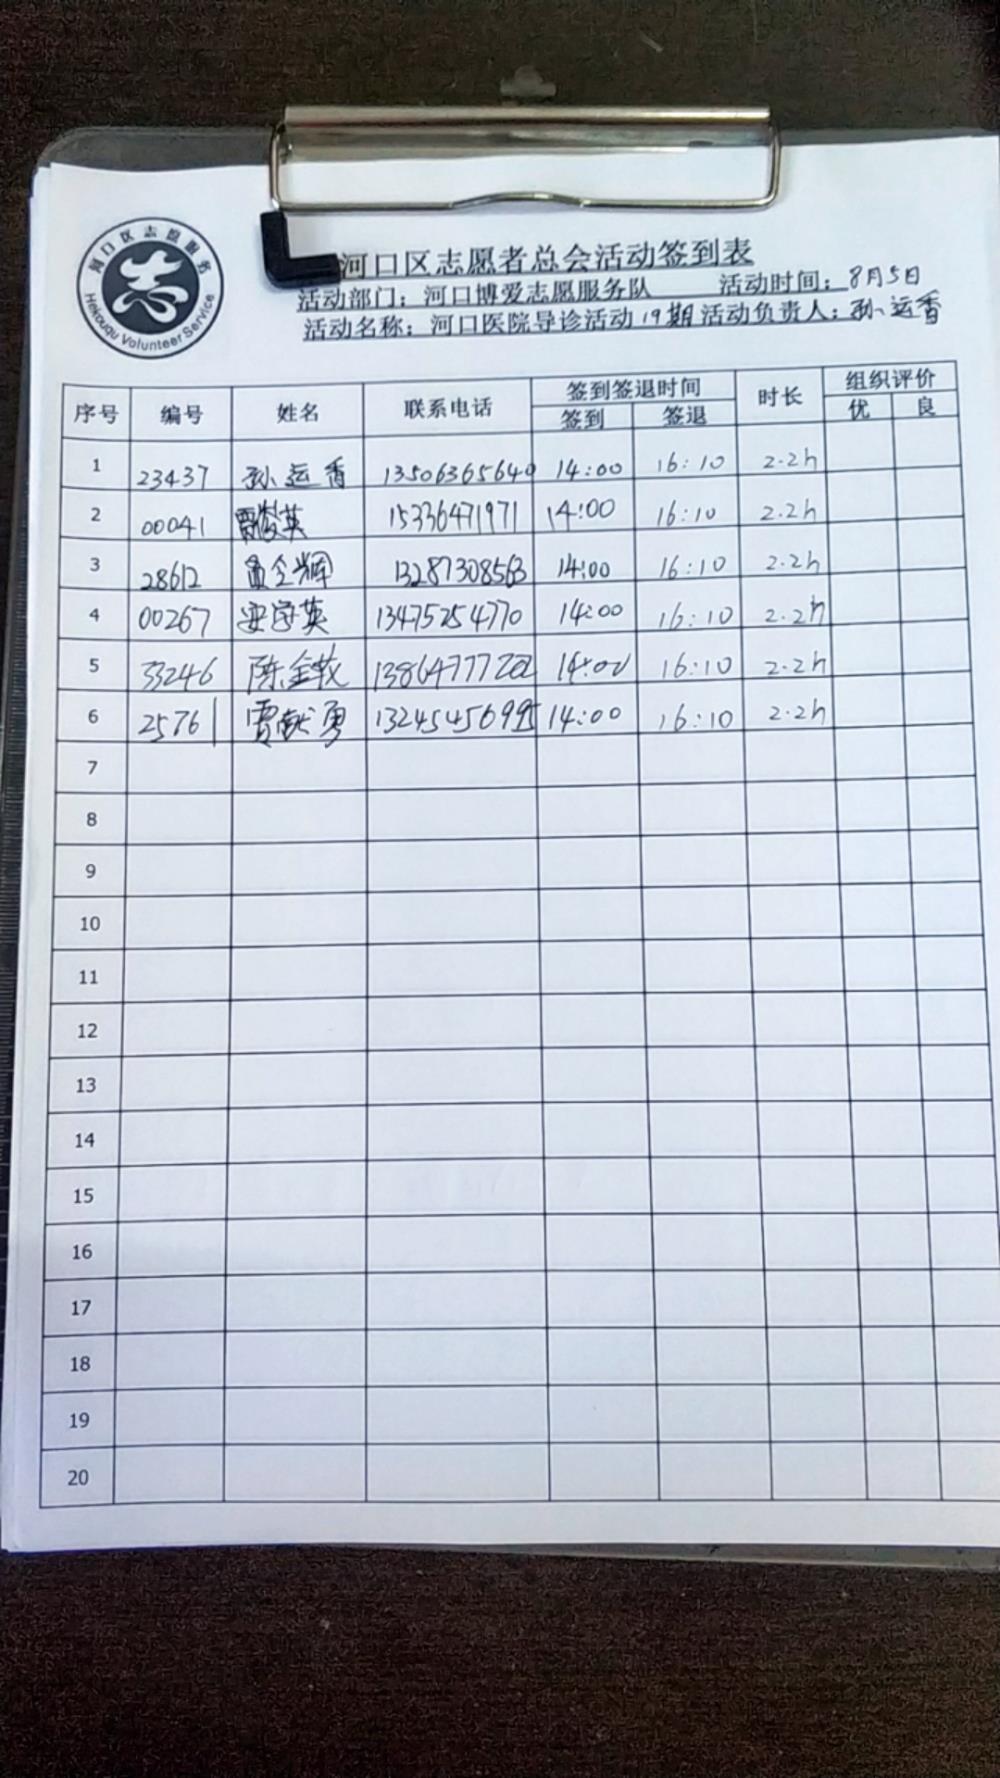 河口区志愿服务
Hekouqu Volunteer Service
河口区志愿者总会活动签到表
活动部门：河口博爱志愿服务队 活动时间：8月5日
活动名称：河口医院导诊活动19期 活动负责人：孙运香
序号 编号 姓名 联系电话 签到签退时间 时长 组织评价
签到 签退 优 良
1 23437 孙运香 13506365640 14:00 16:10 2.2h
2 00041 贾俊英 15336471971 14:00 16:10 2.2h
3 28612 13287308563 14:00 16:10 2.2h
4 00267 安学英 13475254770 14:00 16:10 2.2h
5 33246 陈金 14:00 16:10 2.2h
6 25761 贾献勇 14:00 16:10 2.2h
7
8
9
10
11
12
13
14
15
16
17
18
19
20